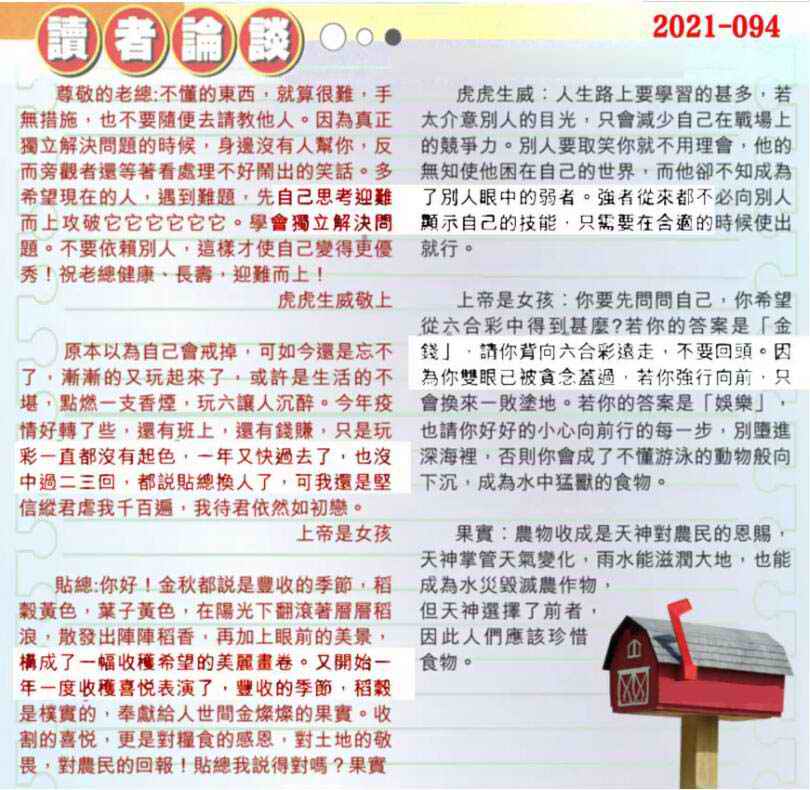 讀者論談
2021-094
尊敬的老總:不懂的東西，就算很難，手
無措施，也不要隨便去請教他人。因為真正
獨立解決問題的時候，身邊沒有人幫你，反
而旁觀者還等著看處理不好鬧出的笑話。多
希望現在的人，遇到難題，先自己思考迎難
而上攻破它它它它它它。學會獨立解決問
題。不要依賴別人，這樣才使自己變得更優
秀！祝老總健康、長壽，迎難而上！
虎虎生威敬上
原本以為自己會戒掉，可如今還是忘不
了，漸漸的又玩起來了，或許是生活的不
堪，點燃一支香煙，玩六讓人沉醉。今年疫
情好轉了些，還有班上，還有錢賺，只是玩
彩一直都沒有起色，一年又快過去了，也沒
中過二三回，都説貼總換人了，可我還是堅
信縱君虐我千百遍，我待君依然如初戀。
上帝是女孩
貼總:你好！金秋都説是豐收的季節，稻
穀黃色，葉子黃色，在陽光下翻滾著層層稻
浪，散發出陣陣稻香，再加上眼前的美景，
構成了一幅收穫希望的美麗畫卷。又開始一
年一度收穫喜悦表演了，豐收的季節，稻穀
是樸實的，奉獻給人世間金燦燦的果實。收
割的喜悦，更是對糧食的感恩，對土地的敬
畏，對農民的回報！貼總我說得對嗎？果實
虎虎生威：人生路上要學習的甚多，若
太介意別人的目光，只會減少自己在戰場上
的競爭力。別人要取笑你就不用理會，他的
無知使他困在自己的世界，而他卻不知成為
了別人眼中的弱者。強者從來都不必向別人
顯示自己的技能，只需要在合適的時候使出
就行。
上帝是女孩：你要先問問自己，你希望
從六合彩中得到甚麼?若你的答案是「金
錢」，請你背向六合彩遠走，不要回頭。因
為你雙眼已被貪念蓋過，若你強行向前，只
會換來一敗塗地。若你的答案是「娛樂」，
也請你好好的小心向前行的每一步，別墮進
深海裡，否則你會成了不懂游泳的動物般向
下沉，成為水中猛獸的食物。
果實：農物收成是天神對農民的恩賜，
天神掌管天氣變化，雨水能滋潤大地，也能
成為水災毀滅農作物，
但天神選擇了前者，
因此人們應該珍惜
食物。